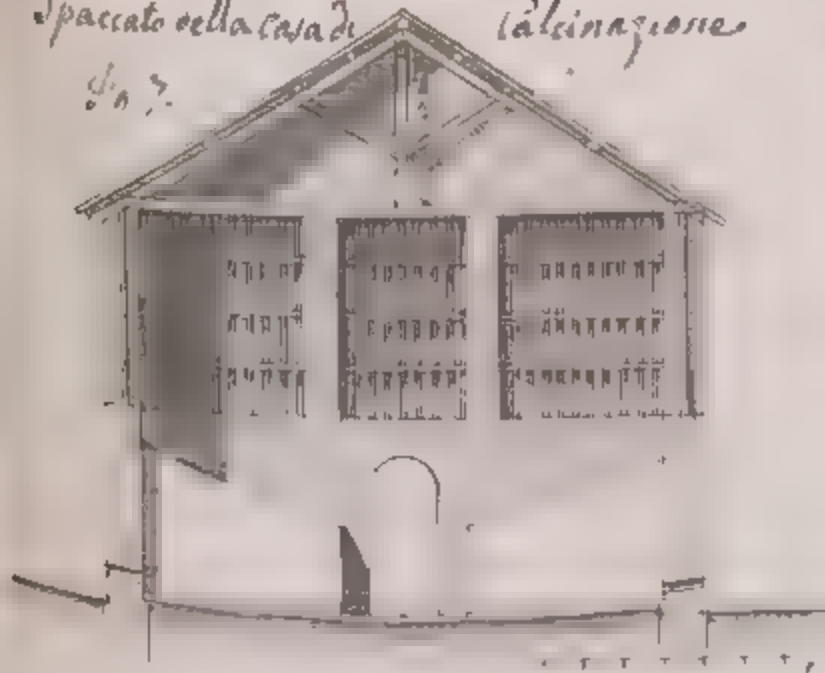 Spaccato della Casa di Calcinazione